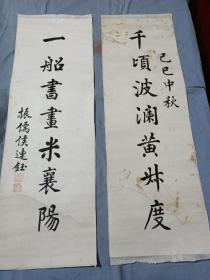 己巳中秋
千頃波瀾黃叔度
一船書畫米襄陽
振僑侯連鈺